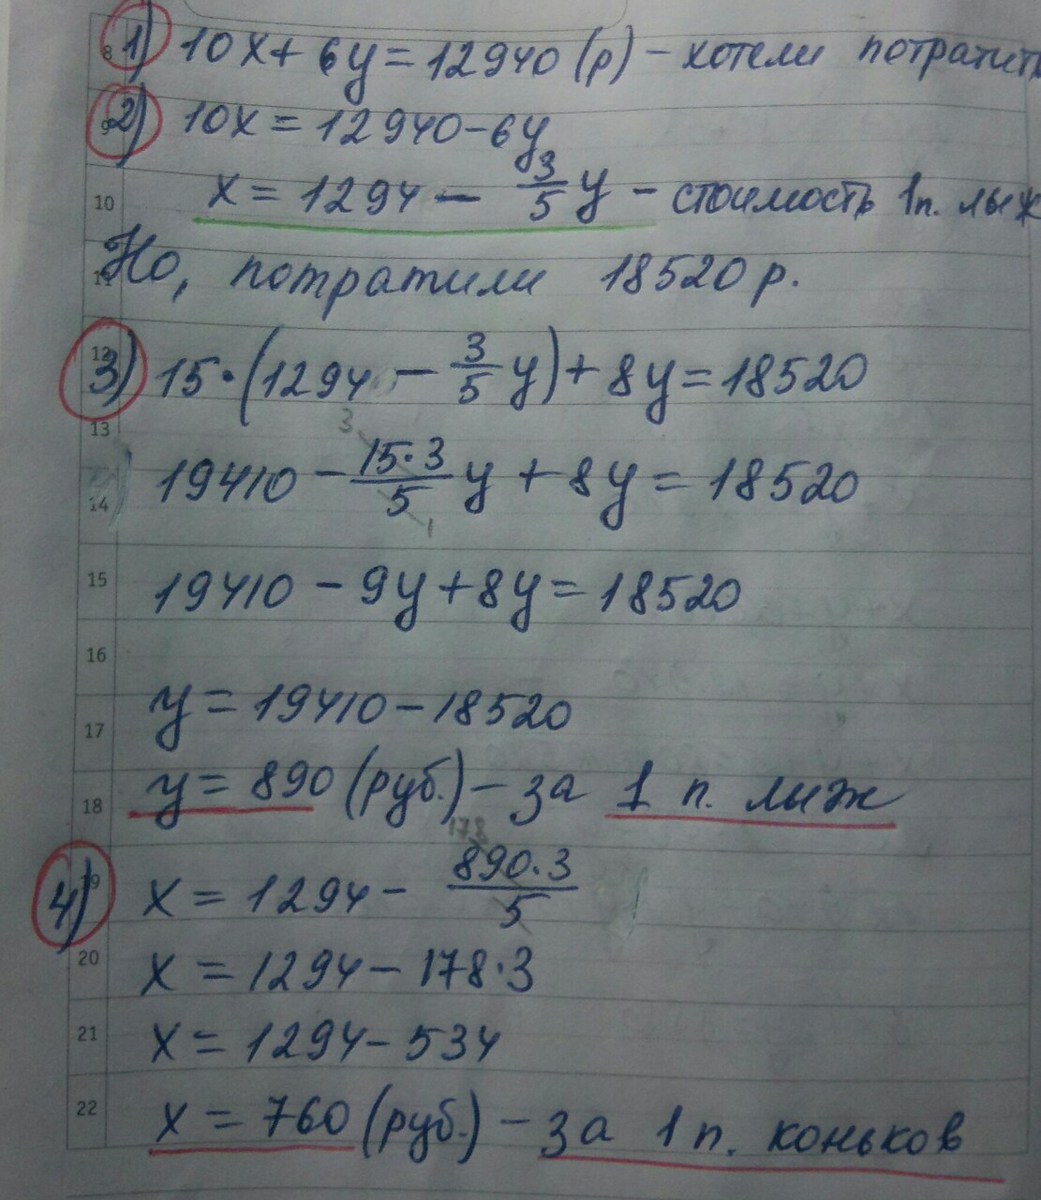 1) 10x + 6y = 12940 (р) – хотели потратить
2) 10x = 12940 – 6y
x = 1294 – 3/5 y – стоимость 1п. лыж
Но, потратили 18520 р.
3) 15·(1294 – 3/5 y) + 8y = 18520
19410 – 15·3/5 y + 8y = 18520
19410 – 9y + 8y = 18520
y = 19410 – 18520
y = 890 (руб.) – за 1 п. лыж
4) x = 1294 – 890·3/5
x = 1294 – 178·3
x = 1294 – 534
x = 760 (руб.) – за 1 п. коньков
8
9
10
11
12
13
14
15
16
17
18
19
20
21
22
3
1
178